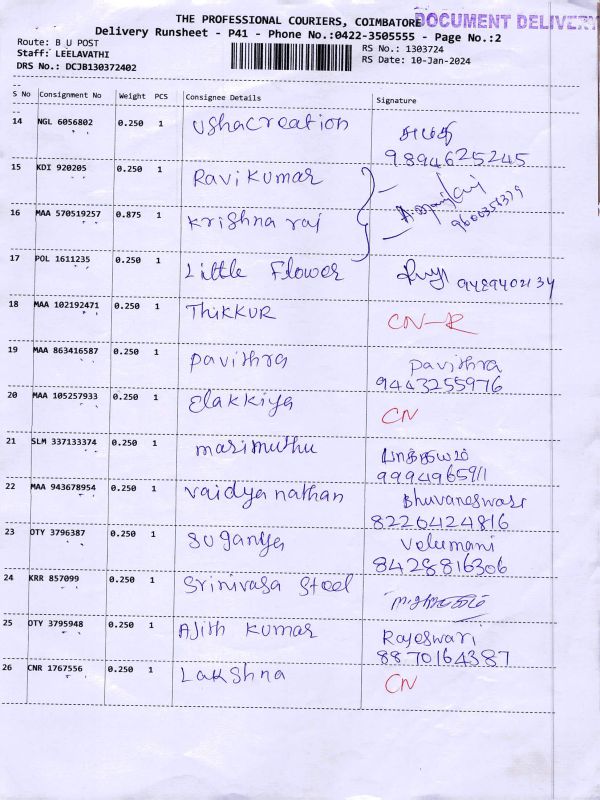 THE PROFESSIONAL COURIERS, COIMBATORE
DOCUMENT DELIVERY
Delivery Runsheet - P41 - Phone No.:0422-3505555 - Page No.:2
Route: B U POST
RS No.: 1303724
Staff: LEELAVATHI
RS Date: 10-Jan-2024
DRS No.: DCJB130372402
S No Consignment No Weight PCS Consignee Details Signature
14 NGL 6056802 0.250 1 ushacreation
9894625245
15 KDI 920205 0.250 1 Ravikumar
16 MAA 570519257 0.875 1 Krishna raj
17 POL 1611235 0.250 1 Little Flower 9489402134
18 MAA 102192471 0.250 1 THIKKUR CN-R
19 MAA 863416587 0.250 1 pavithra pavithra
9443255976
20 MAA 105257933 0.250 1 Elakkiya CN
21 SLM 337133374 0.250 1 marimuthu
9994965911
22 MAA 943678954 0.250 1 vaidyanathan Bhuvaneswari
8220424816
23 OTY 3796387 0.250 1 suganya Velumani
8428816306
24 KRR 857099 0.250 1 Srinivasa Steel
25 OTY 3795948 0.250 1 Ajith Kumar Rajeswari
8870164387
26 CNR 1767556 0.250 1 Lakshna CN